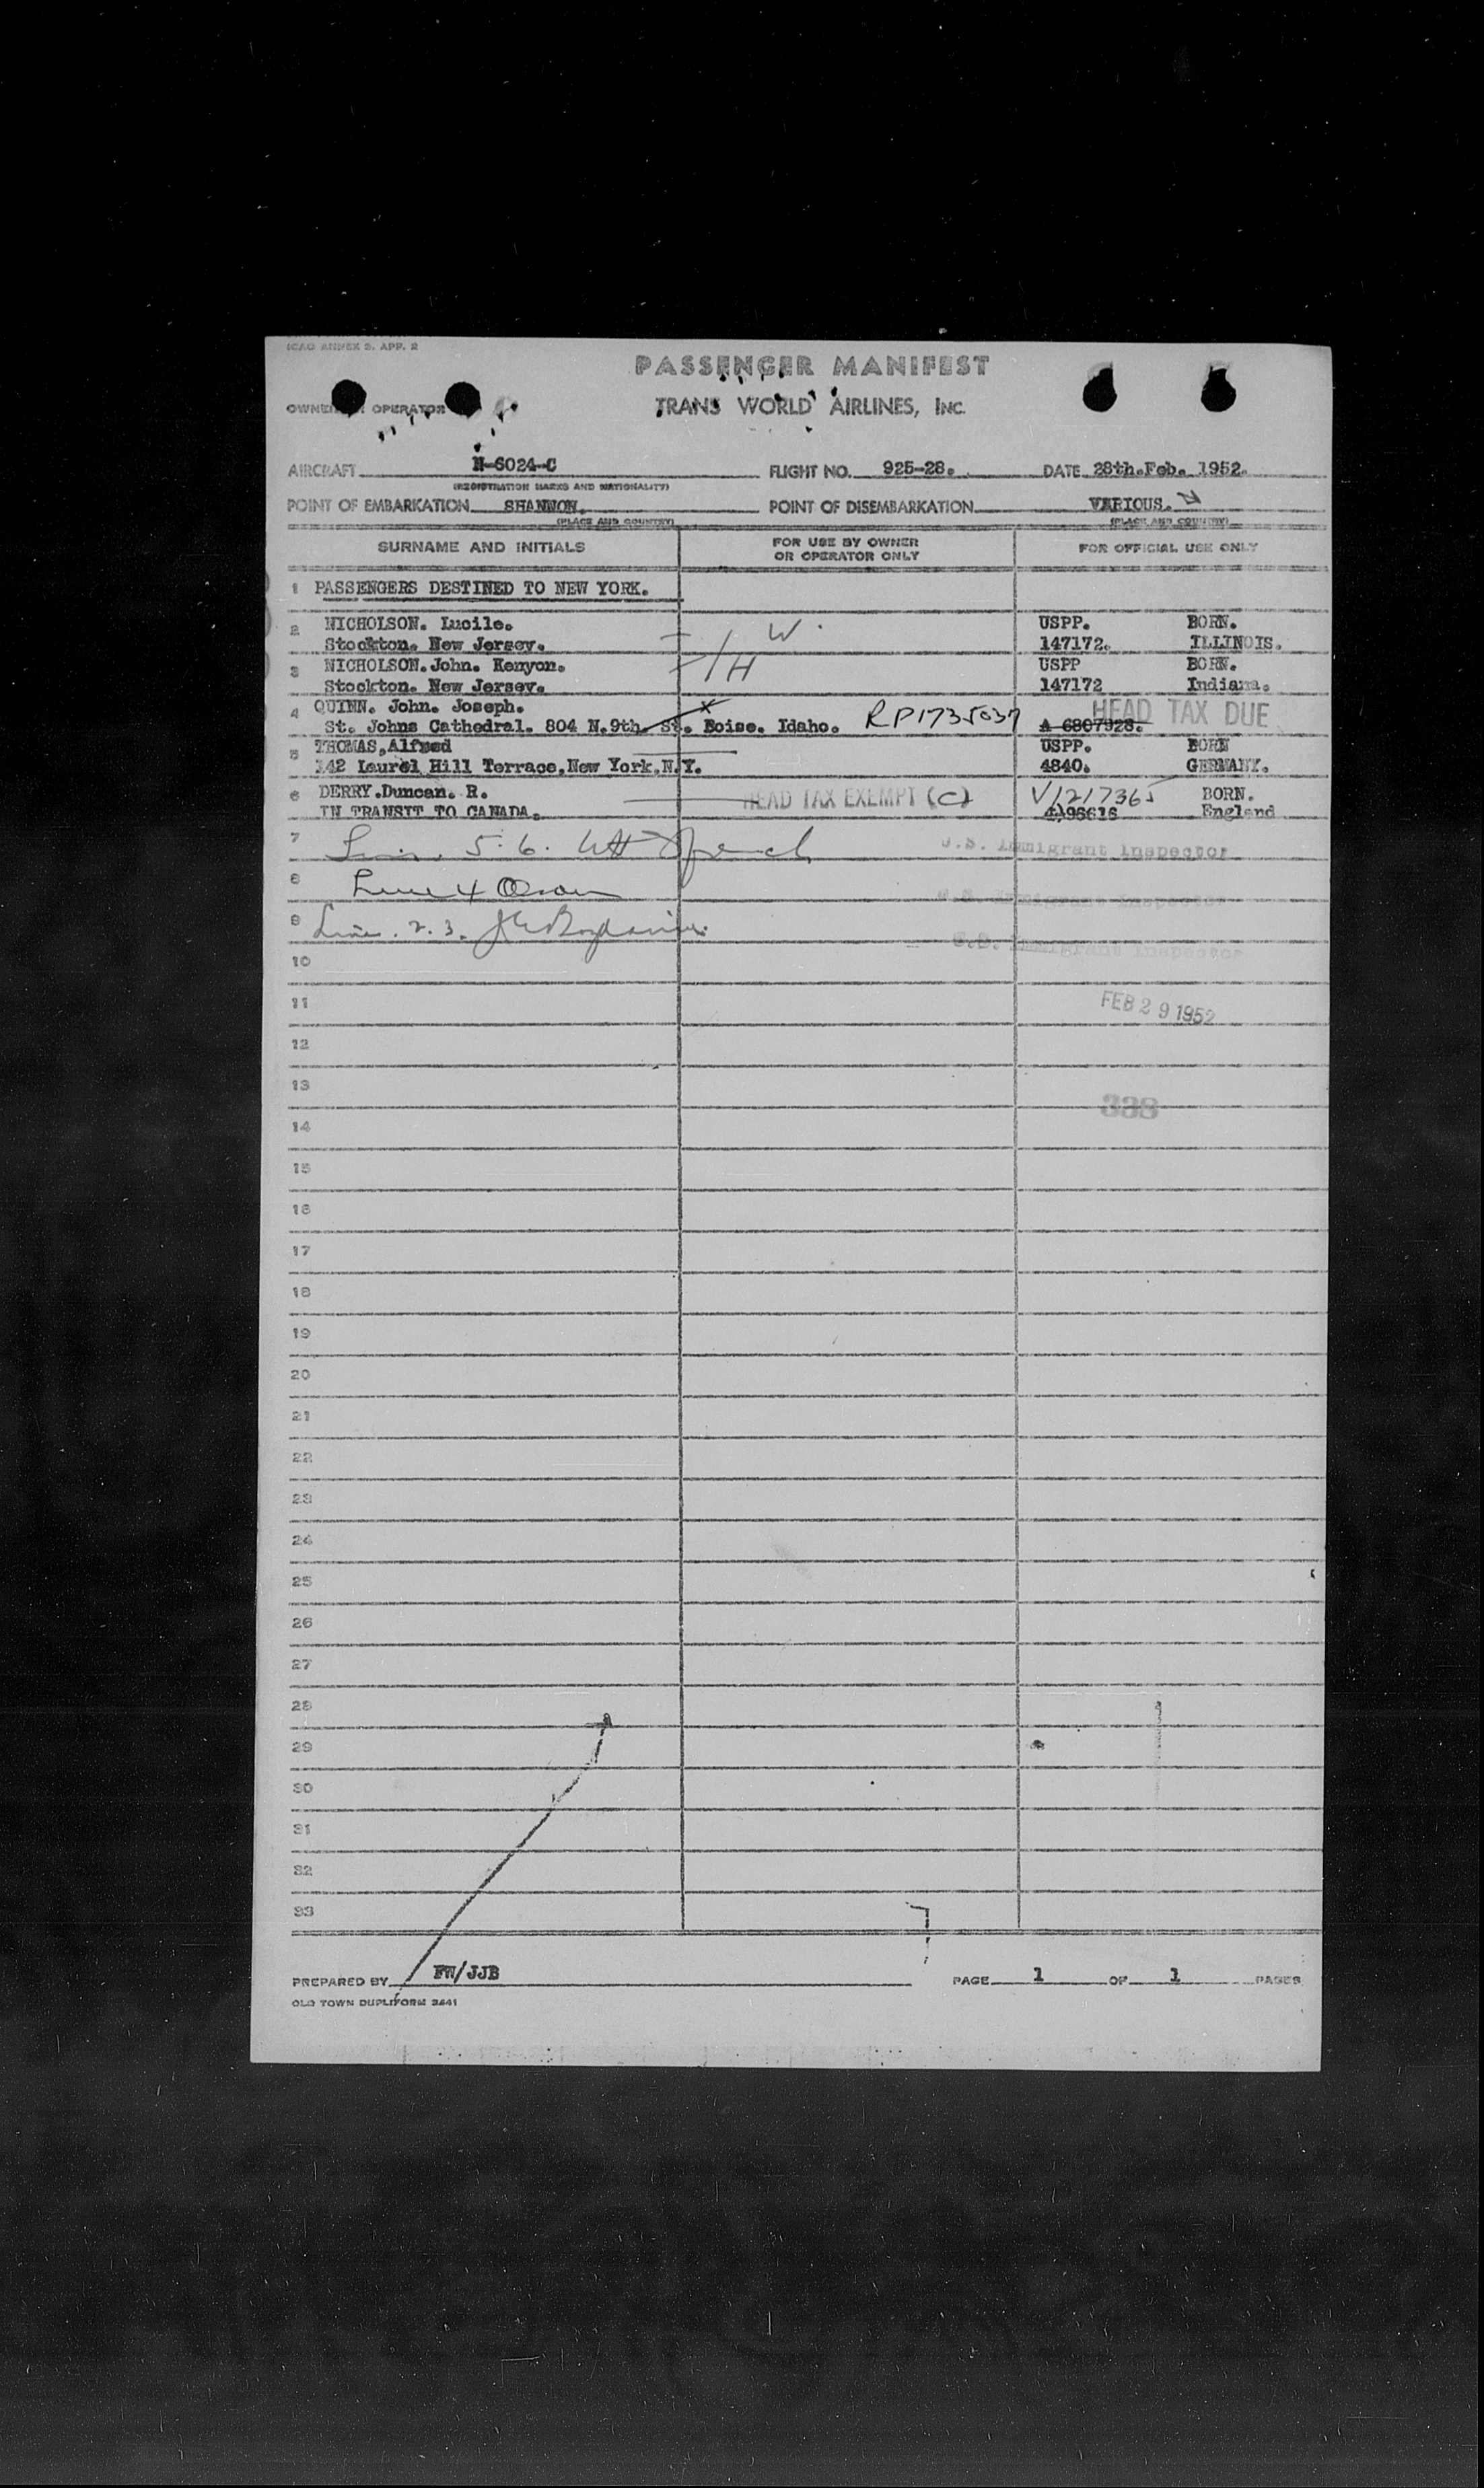 ICAO ANNEX 9. APP. 2
PASSENGER MANIFEST
OWNER OR OPERATOR TRANS WORLD AIRLINES, INC.
AIRCRAFT N-6024-C FLIGHT NO. 925-28. DATE 28th.Feb. 1952.
(REGISTRATION MARKS AND NATIONALITY)
POINT OF EMBARKATION SHANNON. POINT OF DISEMBARKATION VARIOUS.
(PLACE AND COUNTRY) (PLACE AND COUNTRY)
SURNAME AND INITIALS FOR USE BY OWNER OR OPERATOR ONLY FOR OFFICIAL USE ONLY
1 PASSENGERS DESTINED TO NEW YORK.
2 NICHOLSON. Lucile. W. USPP. BORN.
Stockton. New Jersey. 147172. ILLINOIS.
3 NICHOLSON. John. Kenyon. H USPP BORN.
Stockton. New Jersey. 147172 Indiana.
4 QUINN. John. Joseph. x HEAD TAX DUE
St. Johns Cathedral. 804 N.9th. St. Boise. Idaho. RP1735037 A 6807928.
5 THOMAS,Alfred USPP. BORN
142 Laurel Hill Terrace,New York,N.Y. 4840. GERMANY.
6 DERRY.Duncan. R. HEAD TAX EXEMPT (C) V1217365 BORN.
IN TRANSIT TO CANADA. 4)96616 England
7 Line. 5. 6. U.S. Immigrant Inspector
8 Line 4 Olson U.S. Immigrant Inspector
9 Line. 2. 3. U.S. Immigrant Inspector
10
11 FEB 29 1952
12
13 338
14
15
16
17
18
19
20
21
22
23
24
25
26
27
28
29
30
31
32
33
PREPARED BY FW/JJB PAGE 1 OF 1 PAGES
OLD TOWN DUPLIFORM 3441